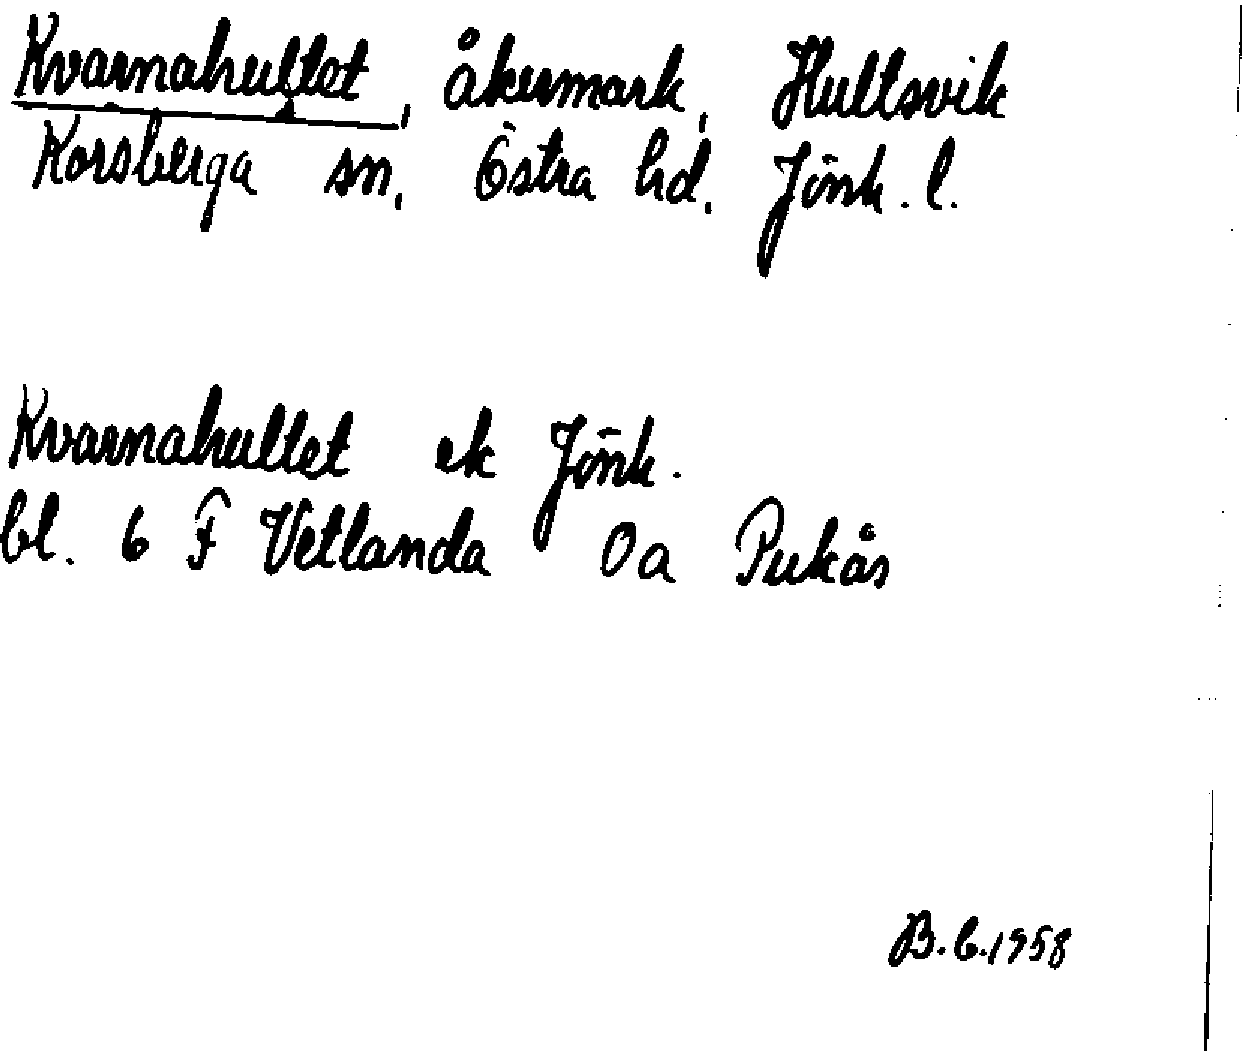 Kvarnahultet, åkermark, Hultsvik
Korsberga sn, Östra hd, Jönk. l.
Kvarnahultet ek Jönk.
bl. 6 F Vetlanda 0a Pukås
B.C. 1958